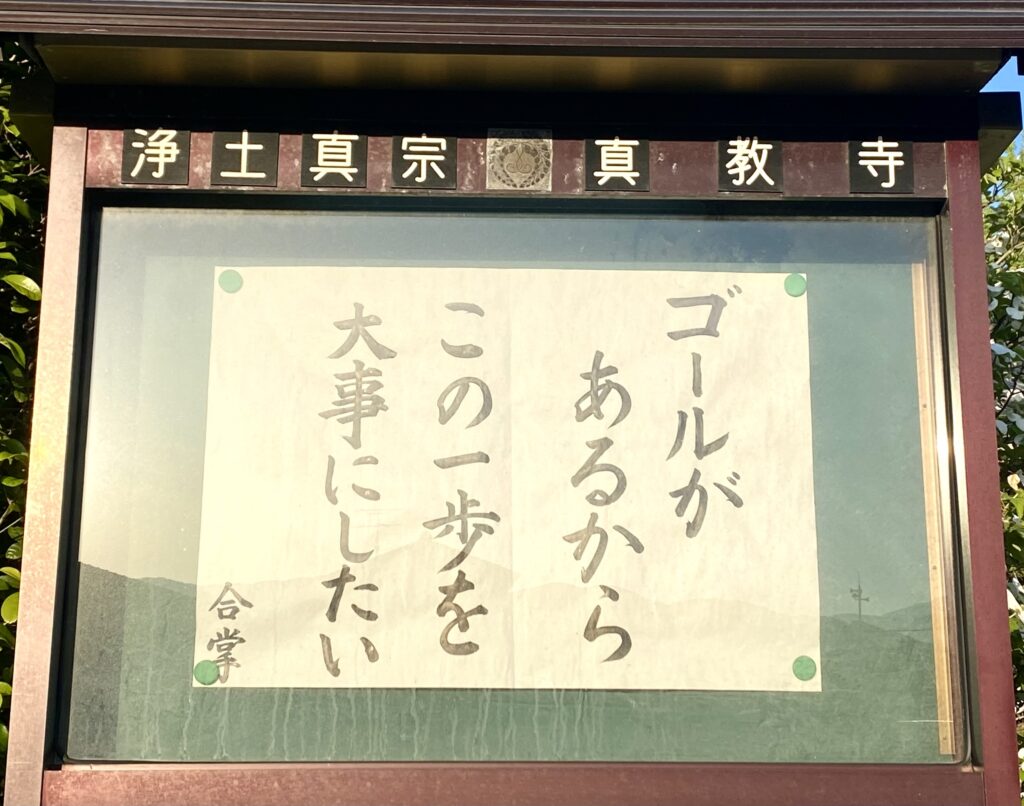 浄土真宗 真教寺
ゴールが
あるから
この一歩を
大事にしたい
合掌